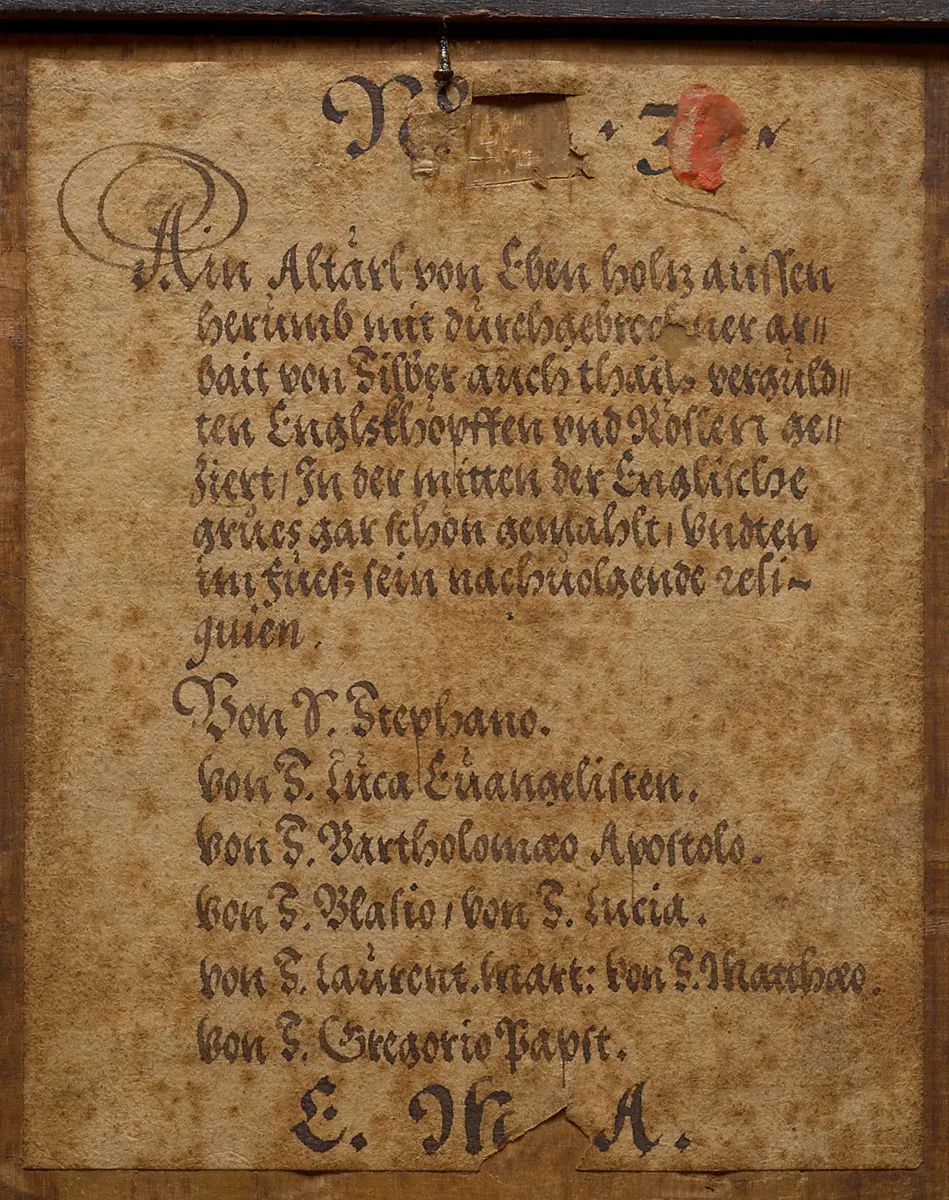 No. 3
Ain Altärl von Eben holtz aussen
herumb mit durchgebrochner ar⸗
bait von Silber auch thails verguld⸗
ten Englskhöpffen vnd Rosen ge⸗
ziert / In der mitten der Englische
grues gar schön gemahlt / Vndten
im Fuess sein nachuolgende reli⸗
quien.
Von S. Stephano.
von S. Luca Euangelisten.
von S. Bartholomæo Apostolo.
von S. Blasio / von S. Lucia.
von S. Laurent. Mart: von S. Matthæo.
von S. Gregorio Papst.
E. M. A.